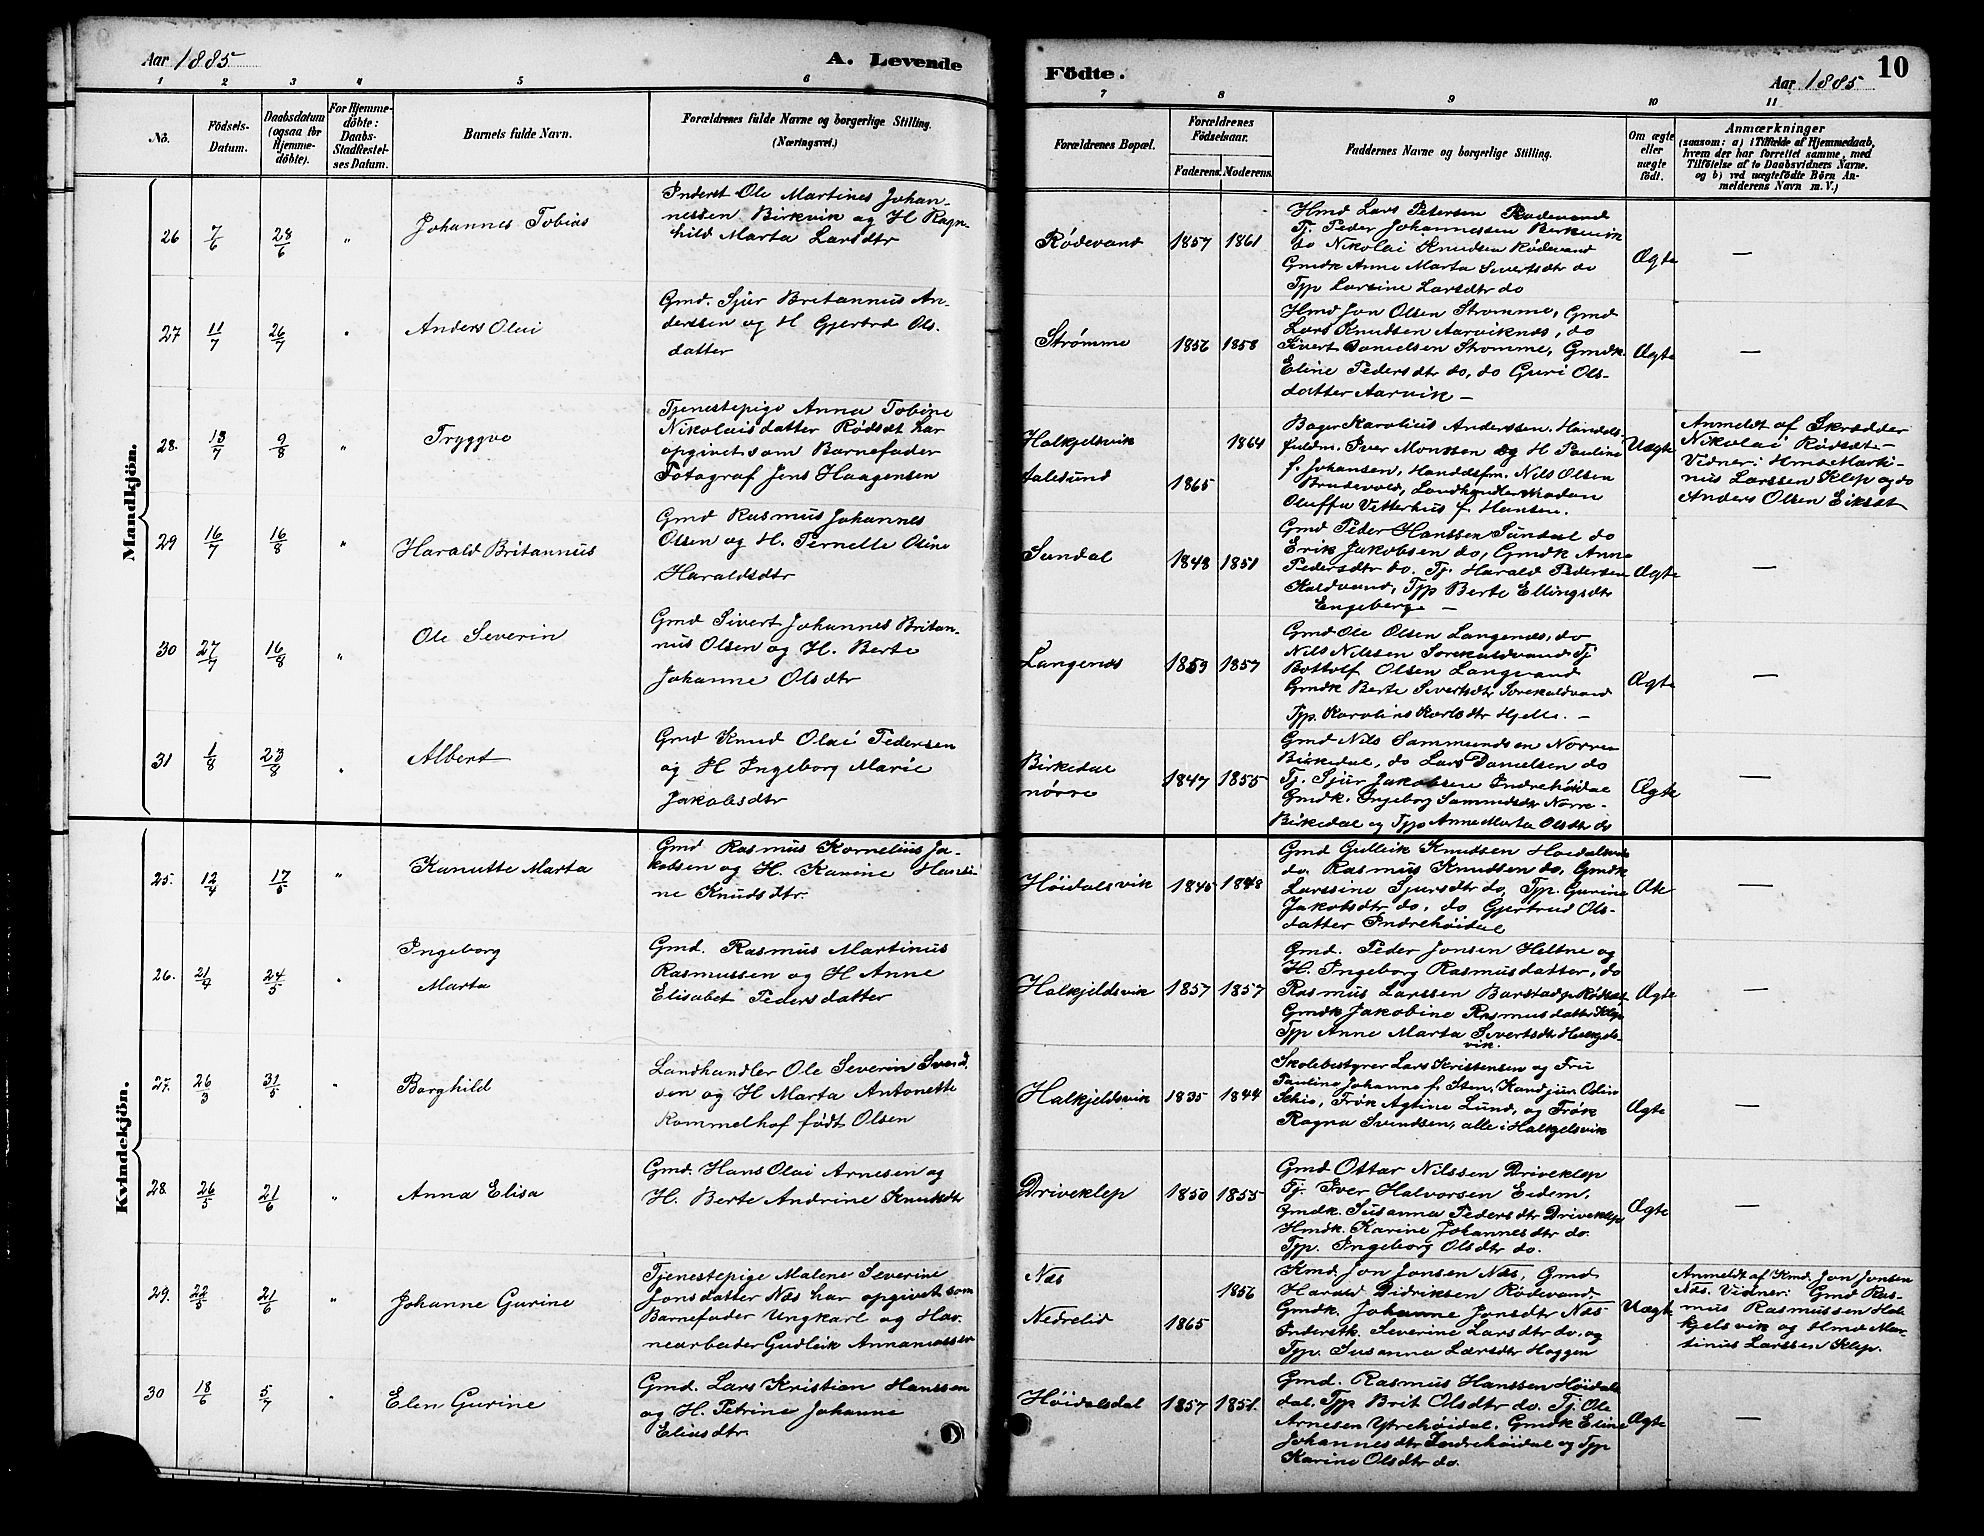 Aar 1885
A. Levende
Födte.
10
Aar 1885
1 2 3 4 5 6 7 8 9 10 11
No.
Födsels-
Datum.
Daabsdatum
(ogsaa for
Hjemme-
döbte).
For Hjemme-
döbte:
Daabs-
Stadfæstel-
ses Datum.
Barnets fulde Navn.
Forældrenes fulde Navne og borgerlige Stilling.
(Næringsvei.)
Forældrenes Bopæl.
Forældrenes
Födselsaar.
Faderens. Moderens.
Faddernes Navne og borgerlige Stilling.
Om ægte
eller
uægte
födt.
Anmærkninger
(saasom: a) i Tilfælde af Hjemmedaab,
hvem der har forrettet samme, med
Tilföielse af to Daabsvidners Navne.
og b) ved uægtefödte Börn An-
melderens Navn m. V.)
Mandkjön.
26 7/6 28/6 "
Johannes Tobias
Inderst Ole Martines Johan-
nessen Birkvik og H Ragn-
hild Marta Larsdtr
Rødevand
1857 1861
Hmd Lars Petersen Rødevand
Tj. Peder Johannessen Birkevik
do Nikolai Knudsen Rødevand
Gmdk Anne Marta Sivertsdtr do
Tjp Larsine Larsdtr do
Ægte
—
27 11/7 26/7 "
Anders Olai
Gmd. Sjur Britannus An-
derssen og H Gjertrd Ols-
datter
Strømme
1856 1858
Hmd Jon Olsen Stromme, Gmd
Lars Knudsen Aarviknes, do
Sivert Danielsen Stromme, Gmdk
Eline Pedersdtr do, do Guri Ols-
datter Aarvik —
Ægte
—
28. 13/7 9/8 "
Tryggve
Tjenestepige Anna Tobine
Nikolaisdatter Rødsæt har
opgivet som Barnefader
Fotograf Jens Haagensen
Halkjelsvik
Aalesund
1864
1865
Bager Karolius Anderssen. Handels-
fuldm. Iver Monssen og H Pauline
f. Johansen, Handelsfm. Nils Olsen
Brudevold, Landhandler Madam
Oluffa Vitterhus f. Hansen.
Uægte
Anmeldt af Skrædder
Nikolai Rødsæt-
Vidner: Hmd Marti-
nus Larssen Klep og do
Anders Olsen Eiksæt
29 16/7 16/8 "
Harald Britannus
Gmd Rasmus Johannes
Olsen og H. Pernelle Oline
Haraldsdtr
Sundal
1848 1851
Gmd Peder Hanssen Sundal do
Erik Jakobsen do, Gmdk Anne
Pedersdtr do. Tj. Harald Pedersen
Kaldvand, Tjp Berte Ellingsdtr
Engeberge —
Ægte
—
30 27/7 16/8 "
Ole Severin
Gmd Sivert Johannes Britan-
nus Olsen og H. Berte
Johanne Olsdtr
Langenes
1853 1857
Gmd Ole Olsen Langenes, do
Nils Nilssen Sørekaldvand Tj
Bottolf Olsen Langvand
Gmdk Berte Sivertsdtr Sørekaldvand
Tjp. Karoline Karlsdtr Hjelle. —
Ægte
—
31 1/8 23/8 "
Albert
Gmd Knud Olai Pedersen
og H Ingeborg Marie
Jakobsdtr
Birkedal
nørre
1847 1855
Gmd Nils Sammundsen Norre
Birkedal, do Lars Danielsen do
Tj. Sjur Jakobsen Indrehøidal
Gmdk. Ingeborg Sammudsdtr Nørre-
Birkedal og Tjp Anne Marta Olsdtr do
Ægte
—
Kvindekjön.
25. 12/4 17/5 "
Kanutte Marta
Gmd Rasmus Kornelius Ja-
kobsen og H. Karine Hansi-
ne Knudsdtr.
Høidalsvik
1845 1848
Gmd Gulleik Knudsen Høidalsvik
do. Rasmus Knudsen do, Gmdk
Larssine Sjursdtr do, Tjp. Gurine
Jakobsdtr do, do Gjertrud Ols-
datter Indrehøidal
—
26. 21/4 24/5 "
Ingeborg
Marta
Gmd. Rasmus Martinus
Rasmussen og H Anne
Elisabet Pedersdatter
Halkjeldsvik
1857 1857
Gmd. Peder Jonsen Heltne og
H. Ingeborg Rasmusdatter, do
Rasmus Larssen Barstad p Rødsæt
Gmdk Jakobine Rasmusdatter Klep
Tjp Anne Marta Sivertsdtr Halkjels-
vik.
Ægte
—
27. 26/3 31/5 "
Borghild
Landhandler Ole Severin Svend-
sen og H Marta Antonette
Rommelhof født Olsen
Halkjeldsvik
1835 1844
Skolebestyrer Lars Kristensen og Fru
Pauline Johanne f. Sten, Kand jur. Odin
Frøk Agtine Lund, og Frøk
Ragna Svendsen, alle i Halkjelsvik
Ægte
—
28. 26/5 21/6 "
Anna Elisa
Gmd. Hans Olai Arnesen og
H. Berte Andrine Knutsdtr
Driveklep
1850 1855
Gmd Ottar Nilssen Driveklep
Tj. Iver Halvorsen Eidem,
Gmdk. Susanna Pedersdtr Driveklep
Hmdk. Karine Johannesdtr do.
Tjp. Ingeborg Olsdtr do.
Ægte
—
29. 22/5 21/6 "
Johanne Gurine
Tjenestepige Malene Severine
Jonsdatter Næs har opgivet som
Barnefader Ungkarl og Hav-
nearbeider Gudleik Annaniassen
Næs
Nedrelid
1856
1865
Kmd Jon Jonsen Næs, Gmd.
Harald Didriksen Rødevand,
Gmdk. Johanne Jonsdtr Næs
Inderstk. Severine Larsdtr do. og
Tjp. Susanna Larsdtr Haggen
Uægte
Anmeldt af Kmd Jon Jonsen
Næs. Vidner: Gmd Ras-
mus Rasmussen Hal-
kjelsvik og Hmd Mar-
tinus Larssen Klep.
30 18/6 5/7 "
Elen Gurine
Gmd. Lars Kristian Hanssen
og H. Petrine Johanne
Eliasdtr.
Høidalsdal
1857 1851.
Gmd. Rasmus Hanssen Høidals-
dal. Tjp Brit Olsdtr do. Tj. Ole
Arnesen Ytrehøidal. Gmdk Eline
Johannesdtr Indrehøidal og Tjp
Karine Olsdtr do.
Ægte
—